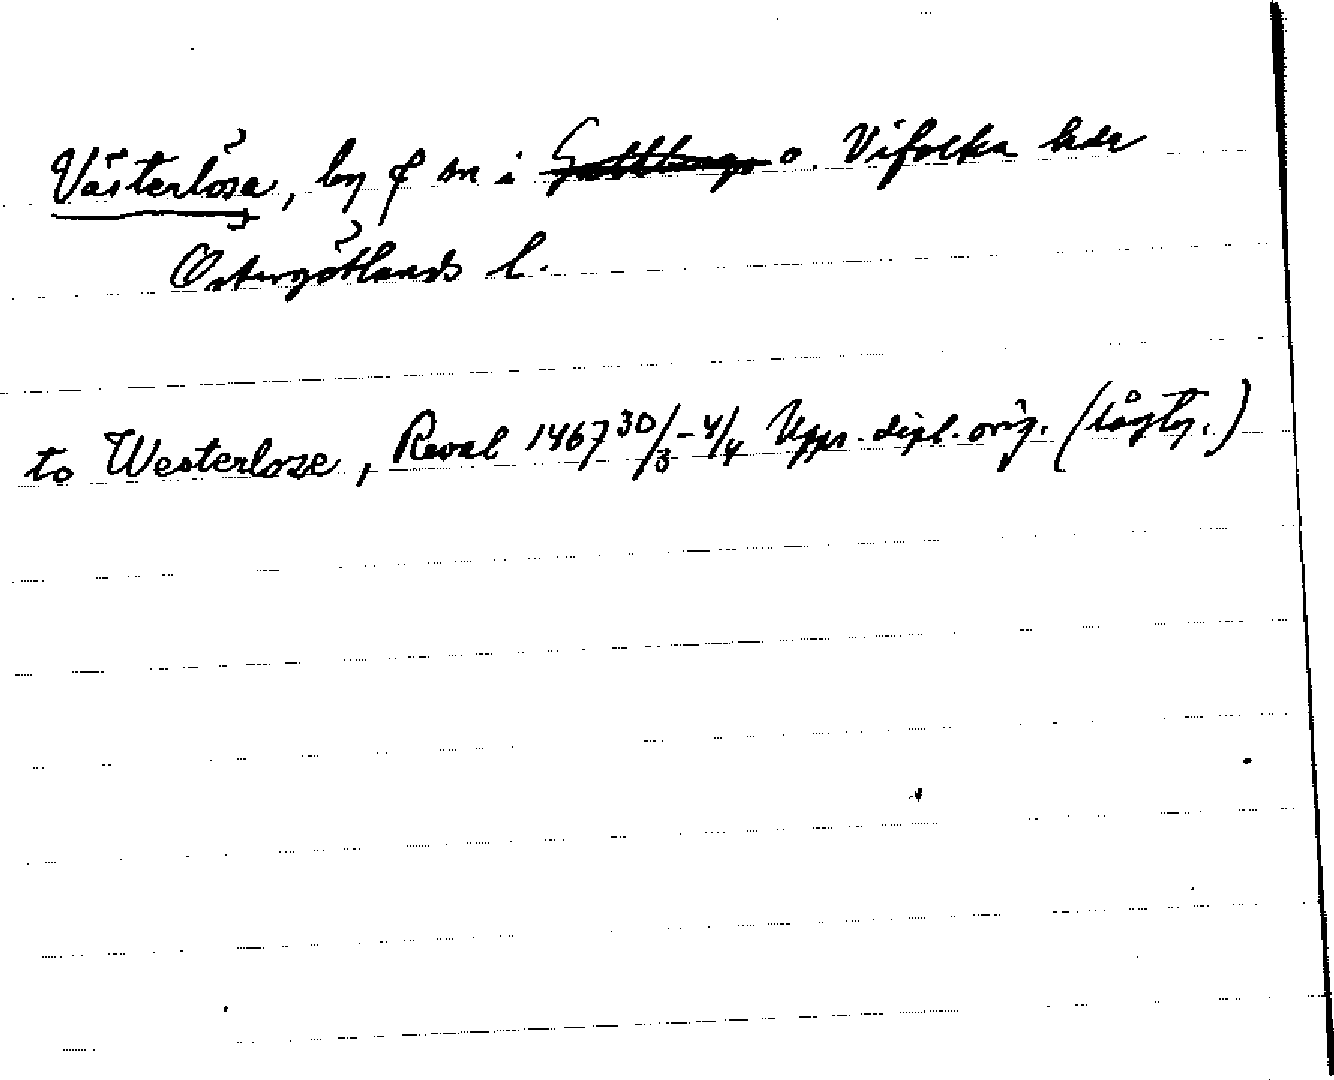 Västerlösa, by o sn i Gullbergs o. Vifolka hdr
Östergötlands l.
to Westerloze, Reval 1467 30/3-4/4 Upps. dipl. orig. (lågty.)